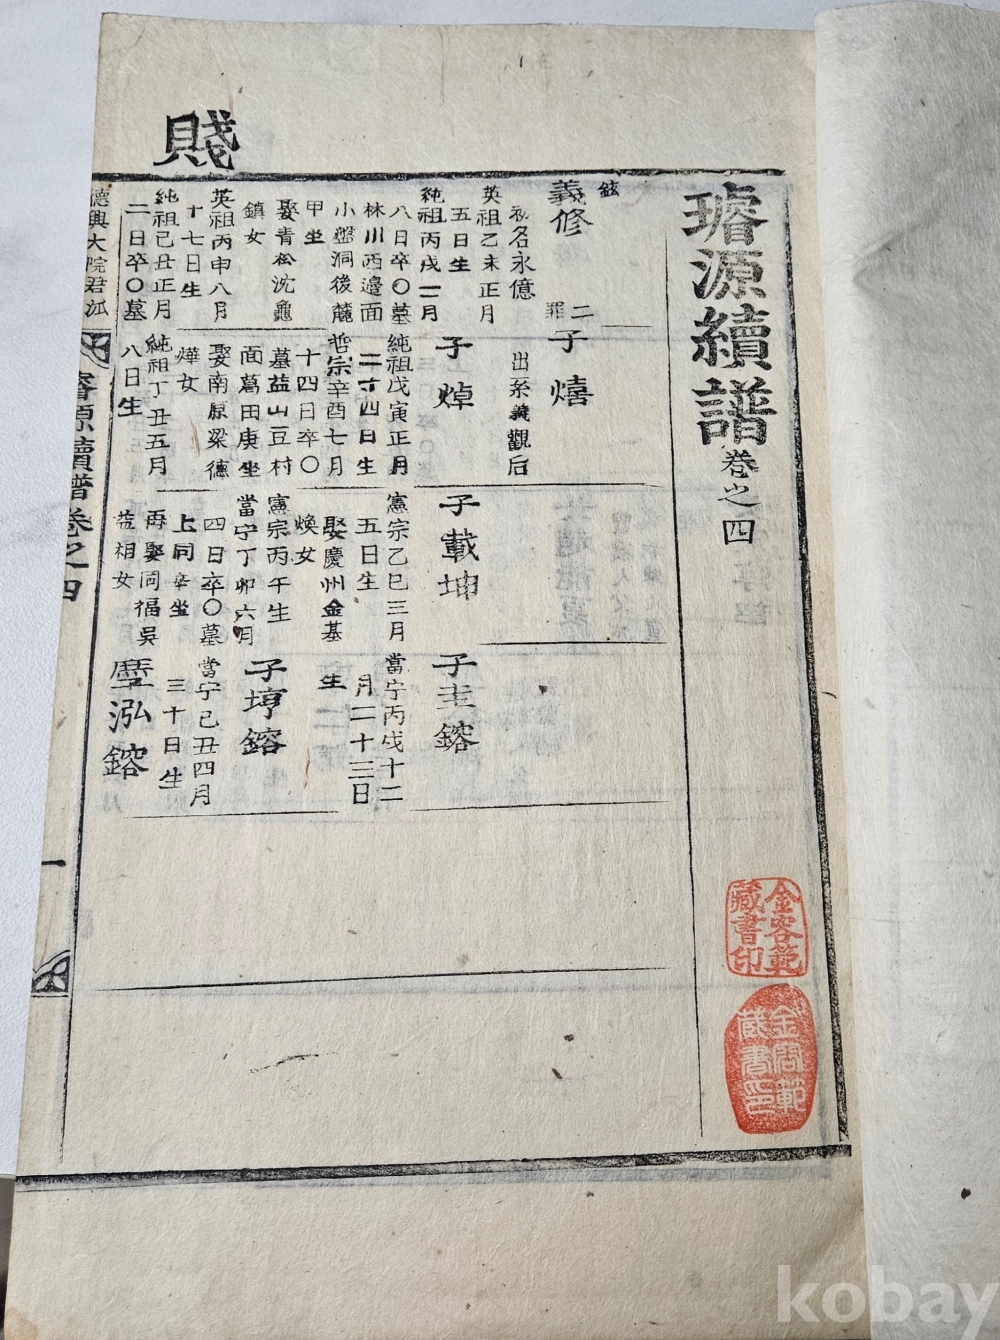 璿源續譜卷之四
金容範
藏書印
金容範
藏書印
賤
鉉
義修
初名永億
英祖乙未正月
五日生
純祖丙戌二月
八日卒〇墓
林川西邊面
小盤洞後麓
甲坐
娶青松沈龜
鎭女
英祖丙申八月
十七日生
純祖己丑正月
二日卒〇墓
二
罪
子熺
出系義觀后
子焯
純祖戊寅正月
二十四日生
哲宗辛酉七月
十四日卒〇
墓益山豆村
面葛田庚坐
娶南原梁德
燁女
純祖丁丑五月
八日生
子載坤
憲宗乙巳三月
五日生
娶慶州金基
煥女
憲宗丙午生
當宁丁卯六月
四日卒〇墓
上同辛坐
再娶同福吳
益相女
子圭鎔
當宁丙戌十二
月二十三日
生
子埻鎔
當宁己丑四月
三十日生
泓鎔
德興大院君派
璿源續譜卷之四
一
kobay